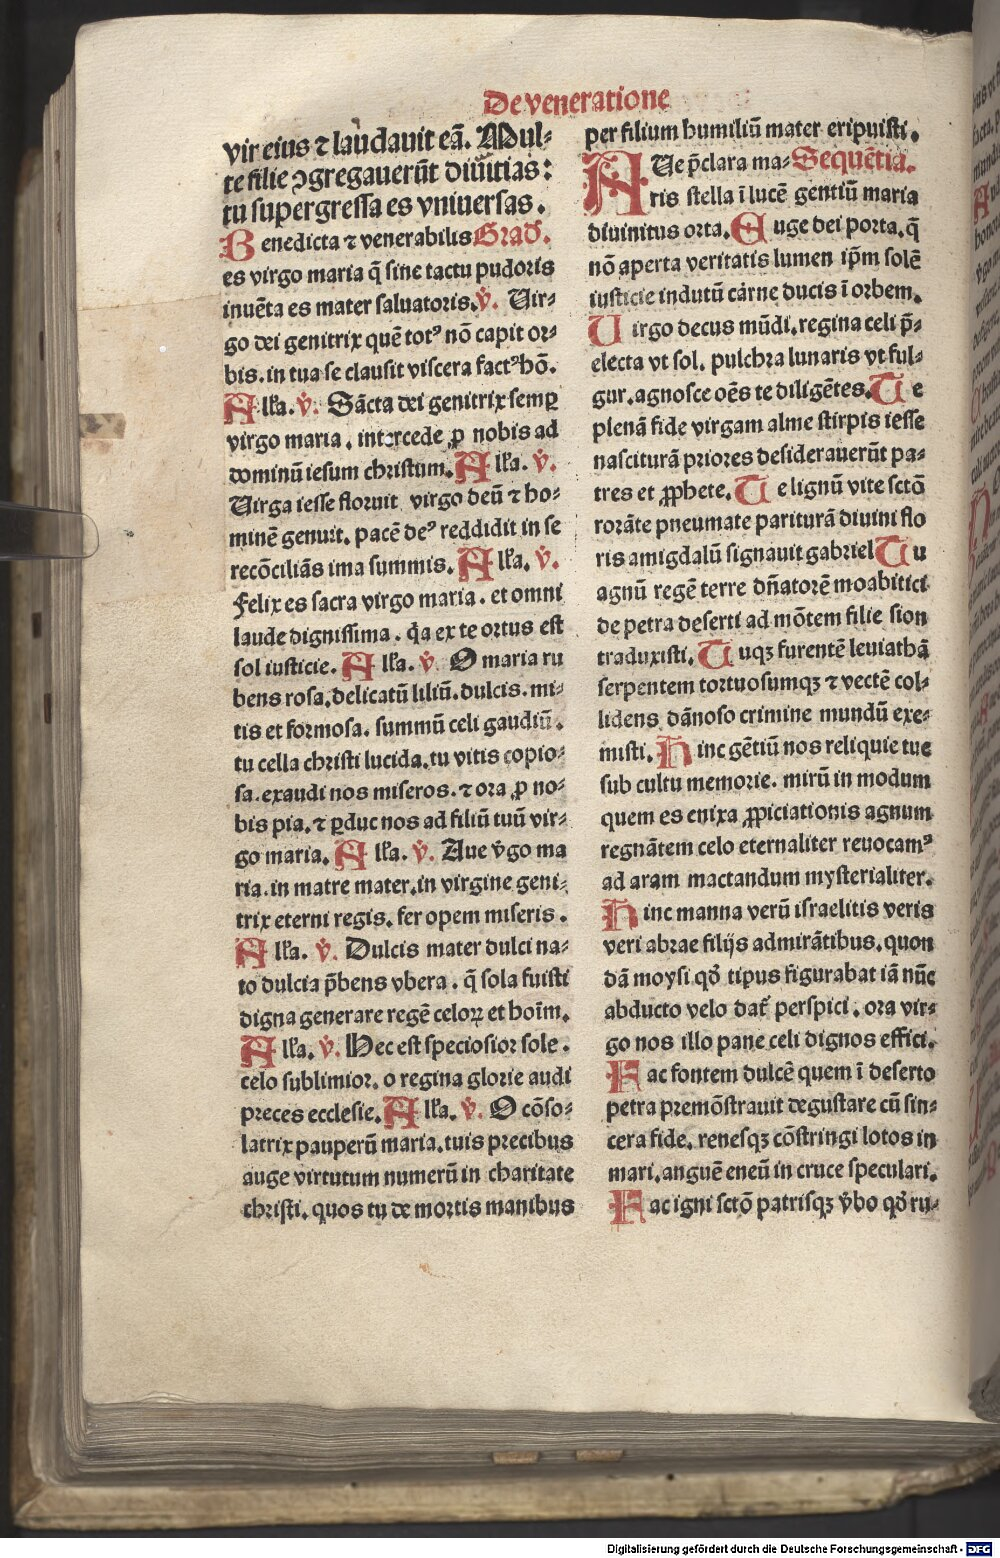 De veneratione
vir eius ⁊ laudauit eā. Mul⸗
te filie ↄgregauerūt diuitias:
tu supergressa es vniuersas.
Benedicta ⁊ venerabilis Grad̄.
es virgo maria q̄ sine tactu pudoris
inuēta es mater saluatoris. v̄. Uir⸗
go dei genitrix quē totꝰ nō capit or⸗
bis. in tua se clausit viscera factꝰ hō.
Alła. v̄. Sācta dei genitrix semꝑ
virgo maria. intercede ꝓ nobis ad
dominū iesum christum. Alła. v̄.
Uirga iesse floruit virgo deū ⁊ ho⸗
minē genuit. pacē deꝰ reddidit in se
recōciliās ima summis. Alła. v̄.
Felix es sacra virgo maria. et omni
laude dignissima. q̄a ex te ortus est
sol iusticie. Alła. v̄. O maria ru
bens rosa. delicatū liliū. dulcis. mi⸗
tis et formosa. summū celi gaudiū.
tu cella christi lucida. tu vitis copio⸗
sa. exaudi nos miseros. ⁊ ora ꝓ no⸗
bis pia. ⁊ ꝑduc nos ad filiū tuū vir⸗
go maria. Alła. v̄. Aue v̄go ma
ria. in matre mater. in virgine geni⸗
trix eterni regis. fer opem miseris.
Alła. v̄. Dulcis mater dulci na⸗
to dulcia p̄bens vbera. q̄ sola fuisti
digna generare regē celoꝝ et hoīm.
Alła. v̄. Hec est speciosior sole.
celo sublimior. o regina glorie audi
preces ecclesie. Alła. v̄. O cōso⸗
latrix pauperū maria. tuis precibus
auge virtutum numerū in charitate
christi. quos tu de mortis manibus
per filium humiliū mater eripuisti.
AUe p̄clara ma⸗ Sequētia.
ris stella ī lucē gentiū maria
diuinitus orta. Euge dei porta. q̄
nō aperta veritatis lumen ip̄m solē
iusticie indutū carne ducis ī orbem.
Uirgo decus mūdi. regina celi p̄⸗
electa vt sol. pulchra lunaris vt ful⸗
gur. agnosce oēs te diligētes. Te
plenā fide virgam alme stirpis iesse
nasciturā priores desiderauerūt pa⸗
tres et ꝓphete. Te lignū vite sctō
rorāte pneumate pariturā diuini flo
ris amigdalū signauit gabriel Tu
agnū regē terre dn̄atorē moabitici
de petra deserti ad mōtem filie sion
traduxisti. Tuqꝫ furentē leuiathā
serpentem tortuosumqꝫ ⁊ vectē col⸗
lidens dānoso crimine mundū exe⸗
misti. Hinc gētiū nos reliquie tue
sub cultu memorie. mirū in modum
quem es enixa ꝓpiciationis agnum
regnātem celo eternaliter reuocamꝰ
ad aram mactandum mysterialiter.
Hinc manna verū israelitis veris
veri abrae filijs admirātibus. quon
dā moysi qō tipus figurabat iā nūc
abducto velo dat᷑ perspici. ora vir⸗
go nos illo pane celi dignos effici.
Fac fontem dulcē quem ī deserto
petra premōstrauit degustare cū sin⸗
cera fide. renesqꝫ cōstringi lotos in
mari. anguē eneū in cruce speculari.
Fac igni sctō patrisqꝫ v̄bo qō ru⸗
Digitalisierung gefördert durch die Deutsche Forschungsgemeinschaft - DFG